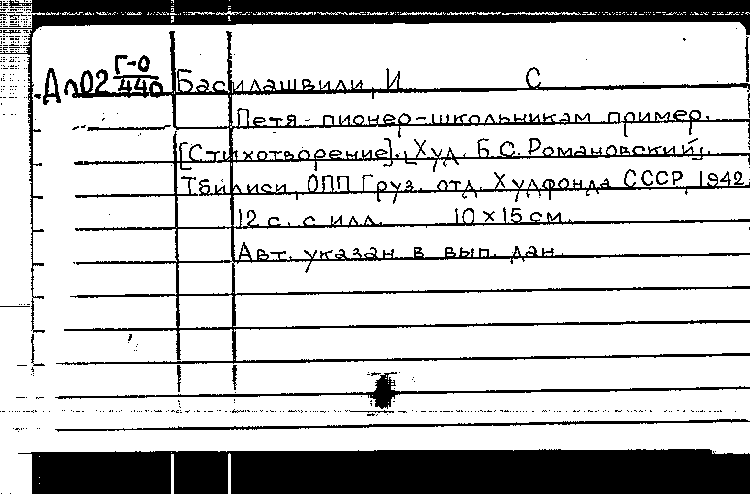 Дл02 Г-О/440 Басилашвили, И С
Петя - пионер-школьникам пример.
[Стихотворение]. [Худ. Б.С. Романовский].
Тбилиси, ОПП Груз. отд. Худфонда СССР, 1942
12 с. с илл. 10 х 15 см.
Авт. указан в вып. дан.